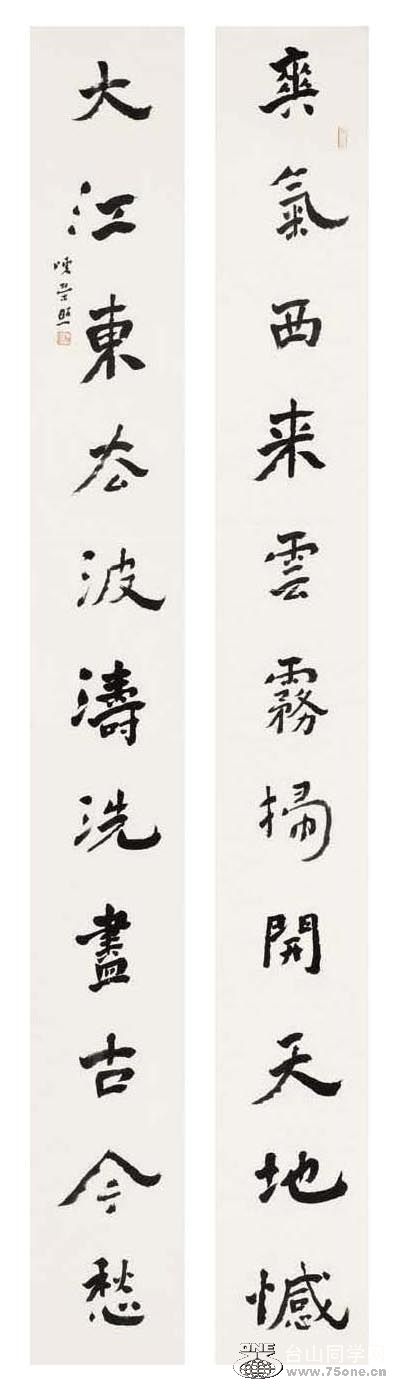 爽氣西来雲霧掃開天地憾
大江東去波濤洗盡古今愁
ONE
台山同学网
www.75one.cn